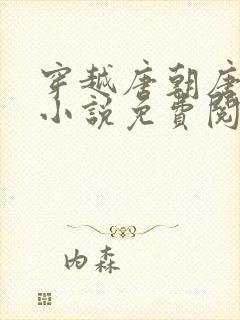 穿越唐朝唐
小説免費閱
内森